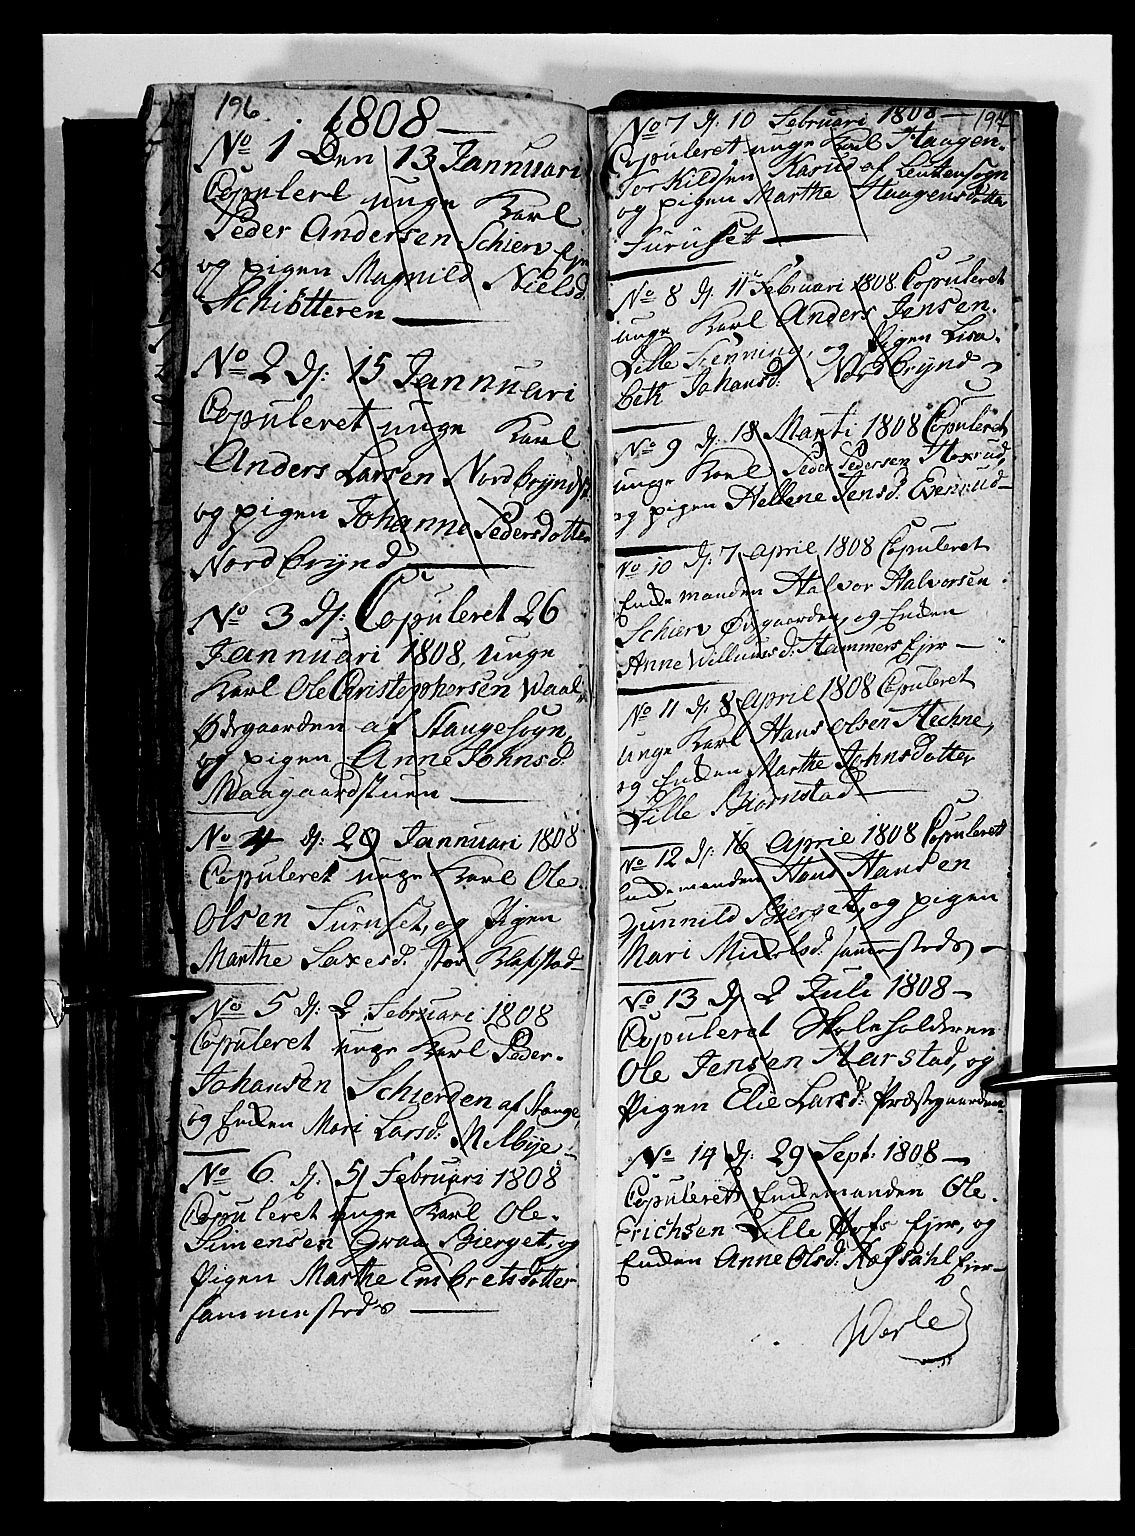 196
1808
No 1 Den 13 Jannuari
Copulert unge Karl
Peder Andersen Schierv Ejer
og pigen Magnild Nielsd.
Schiötteren
No 2 ds: 15 Jannuari
Copuleret unge Karl
Anders Larsen Nordbrynd
og pigen Johanne Pedersdotter
Nordbrynd
No 3 ds: Copuleret 26
Jannuari 1808, unge
Karl Ole Christophersen Waal
Ødegaarden af Stangesogn,
og pigen Anne Johnsd:
Maagaardstuen
No 4 ds: 29 Jannuari 1808
Copuleret unge Karl Ole
Olsen Furuset, og Pigen
Marthe Saxesd. stor Klafstad
No 5 ds: 2 Februari 1808
Copuleret unge Karl Peder
Johansen Schierden af Stange,
og Enken Mari Larsd: Melbye
No 6. ds. 5 Februari 1808
Copuleret unge Karl Ole
Simensen Graa Bierget, og
Pigen Marthe Embretsdotter
sammesteds
197
No 7 ds. 10 Februari 1808
Copuleret unge Karl Haagen
Torkildsen Karud af Leutensogn
og pigen Marthe Haagensdotter
Furuset
No 8 ds. 11 Februari 1808 Copuleret
unge Karl Anders Jensen
Lille Henning, og Pigen Lisa
beth Johansd: Nordbrynd
No 9 ds. 18 Marti 1808 Copuleret
unge Karl Peder Pedersen Hoxrud,
og pigen Hellene Jensd. Evenrud
No 10 ds: 7 April 1808 Copuleret
Enkemanden Halvor Halvorsen
Schierv Øvgaarden, og Enken
Anne Willumsd: Hammers Ejer
No 11 ds. 8 April 1808 Copuleret
unge Karl Hans Olsen Hechne,
og Enken Marthe Johnsdotter
Lille Biørnstad
No 12 ds: 16 April 1808 Copuleret
Enkemanden Hans Hansen
Gunnild Berget, og pigen
Mari Mickelsd. sammesteds
No 13 ds 2 Juli 1808
Copuleret Skoleholderen
Ole Jensen Harstad, og
Pigen Elie Larsd: Præstegaarden
No 14 ds. 29 Sept. 1808
Copuleret Enkemanden Ole
Erichsen Lille Hofs Ejer, og
Enken Anne Olsd: Kæfsahl Ejer
Werle